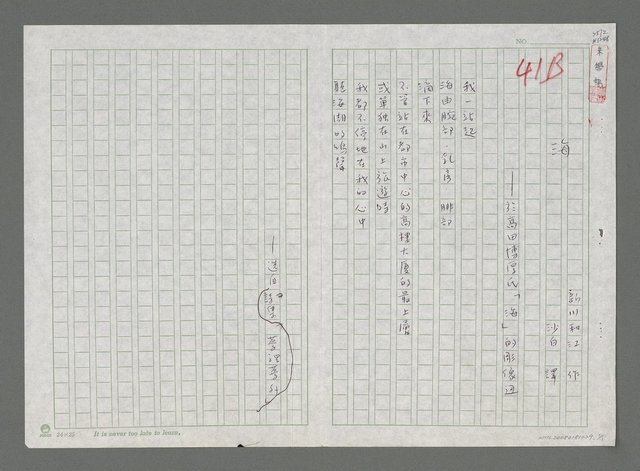 NO.
41B
海
——於高田博厚氏「海」的彫像迅
新川和江 作
沙白 譯
我一站起
海由腕部 乳房 腓部
滴下來
不管站在都市中心的高樓大廈的最上層
或單独在山上旅遊時
我都不停地在我的心中
聽海潮的鳴聲
——選自詩集 夢裡夢外
24×25 It is never too late to learn.